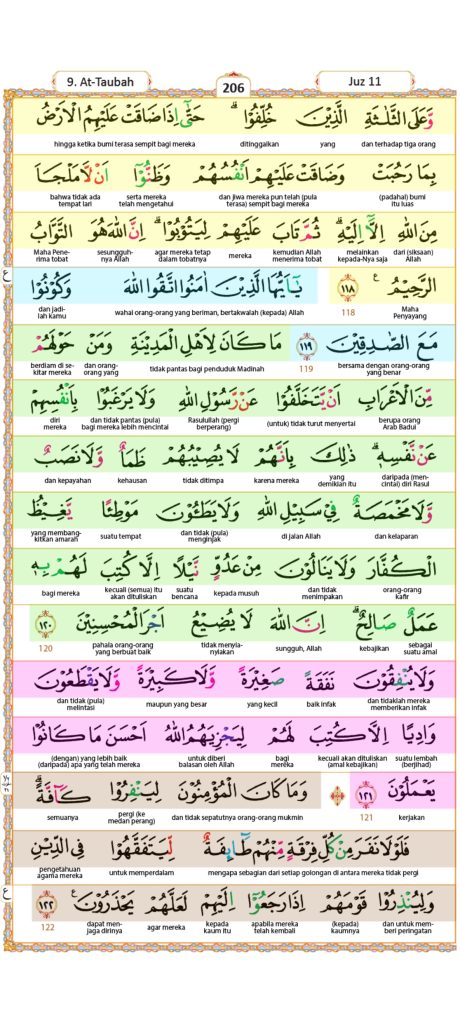 9. At-Taubah 206 Juz 11
وَّعَلَى الثَّلٰثَةِ الَّذِيْنَ خُلِّفُوْا ۗ حَتّٰٓى اِذَا ضَاقَتْ عَلَيْهِمُ الْاَرْضُ
dan terhadap tiga orang yang ditinggalkan hingga ketika bumi terasa sempit bagi mereka
بِمَا رَحُبَتْ وَضَاقَتْ عَلَيْهِمْ اَنْفُسُهُمْ وَظَنُّوْٓا اَنْ لَّا مَلْجَاَ
(padahal) bumi itu luas dan jiwa mereka pun telah (pula terasa) sempit bagi mereka serta mereka telah mengetahui bahwa tidak ada tempat lari
مِنَ اللّٰهِ اِلَّآ اِلَيْهِ ۗ ثُمَّ تَابَ عَلَيْهِمْ لِيَتُوْبُوْا ۗ اِنَّ اللّٰهَ هُوَ التَّوَّابُ
dari (siksaan) Allah melainkan kepada-Nya saja kemudian Allah menerima tobat mereka agar mereka tetap dalam tobatnya sesungguh-nya Allah Maha Pene-rima tobat
الرَّحِيْمُ ࣖ ١١٨ يٰٓاَيُّهَا الَّذِيْنَ اٰمَنُوا اتَّقُوا اللّٰهَ وَكُوْنُوْا
Maha Penyayang 118 wahai orang-orang yang beriman, bertakwalah (kepada) Allah dan jadi-lah kamu
مَعَ الصّٰدِقِيْنَ ١١٩ مَا كَانَ لِاَهْلِ الْمَدِيْنَةِ وَمَنْ حَوْلَهُمْ
bersama dengan orang-orang yang benar 119 tidak pantas bagi penduduk Madinah dan orang-orang yang berdiam di se-kitar mereka
مِّنَ الْاَعْرَابِ اَنْ يَّتَخَلَّفُوْا عَنْ رَّسُوْلِ اللّٰهِ وَلَا يَرْغَبُوْا بِاَنْفُسِهِمْ
berupa orang Arab Badui (untuk) tidak turut menyertai Rasulullah (pergi berperang) dan tidak pantas (pula) bagi mereka lebih mencintai diri mereka
عَنْ نَّفْسِهٖ ۗ ذٰلِكَ بِاَنَّهُمْ لَا يُصِيْبُهُمْ ظَمَاٌ وَّلَا نَصَبٌ
daripada (men-cintai) diri Rasul yang demikian itu karena mereka tidak ditimpa kehausan dan kepayahan
وَّلَا مَخْمَصَةٌ فِيْ سَبِيْلِ اللّٰهِ وَلَا يَطَـُٔوْنَ مَوْطِئًا يَّغِيْظُ
dan kelaparan di jalan Allah dan tidak (pula) menginjak suatu tempat yang membang-kitkan amarah
الْكُفَّارَ وَلَا يَنَالُوْنَ مِنْ عَدُوٍّ نَّيْلًا اِلَّا كُتِبَ لَهُمْ بِهٖ
orang-orang kafir dan tidak menimpakan kepada musuh suatu bencana kecuali (semua) itu akan dituliskan bagi mereka
عَمَلٌ صَالِحٌ ۗ اِنَّ اللّٰهَ لَا يُضِيْعُ اَجْرَ الْمُحْسِنِيْنَ ١٢٠
sebagai suatu amal kebajikan sungguh, Allah tidak menyia-nyiakan pahala orang-orang yang berbuat baik 120
وَلَا يُنْفِقُوْنَ نَفَقَةً صَغِيْرَةً وَّلَا كَبِيْرَةً وَّلَا يَقْطَعُوْنَ
dan tidaklah mereka memberikan infak baik infak yang kecil maupun yang besar dan tidak (pula) melintasi
وَادِيًا اِلَّا كُتِبَ لَهُمْ لِيَجْزِيَهُمُ اللّٰهُ اَحْسَنَ مَا كَانُوْا
suatu lembah (berjihad) kecuali akan dituliskan (amal kebajikan) bagi mereka untuk diberi balasan oleh Allah (dengan) yang lebih baik (daripada) apa yang telah mereka
يَعْمَلُوْنَ ١٢١ ۞ وَمَا كَانَ الْمُؤْمِنُوْنَ لِيَنْفِرُوْا كَاۤفَّةًۗ
kerjakan 121 dan tidak sepatutnya orang-orang mukmin pergi (ke medan perang) semuanya
فَلَوْلَا نَفَرَ مِنْ كُلِّ فِرْقَةٍ مِّنْهُمْ طَاۤىِٕفَةٌ لِّيَتَفَقَّهُوْا فِى الدِّيْنِ
mengapa sebagian dari setiap golongan di antara mereka tidak pergi untuk memperdalam pengetahuan agama mereka
وَلِيُنْذِرُوْا قَوْمَهُمْ اِذَا رَجَعُوْٓا اِلَيْهِمْ لَعَلَّهُمْ يَحْذَرُوْنَ ࣖ ١٢٢
dan untuk mem-beri peringatan (kepada) kaumnya apabila mereka telah kembali kepada kaum itu agar mereka dapat men-jaga dirinya 122